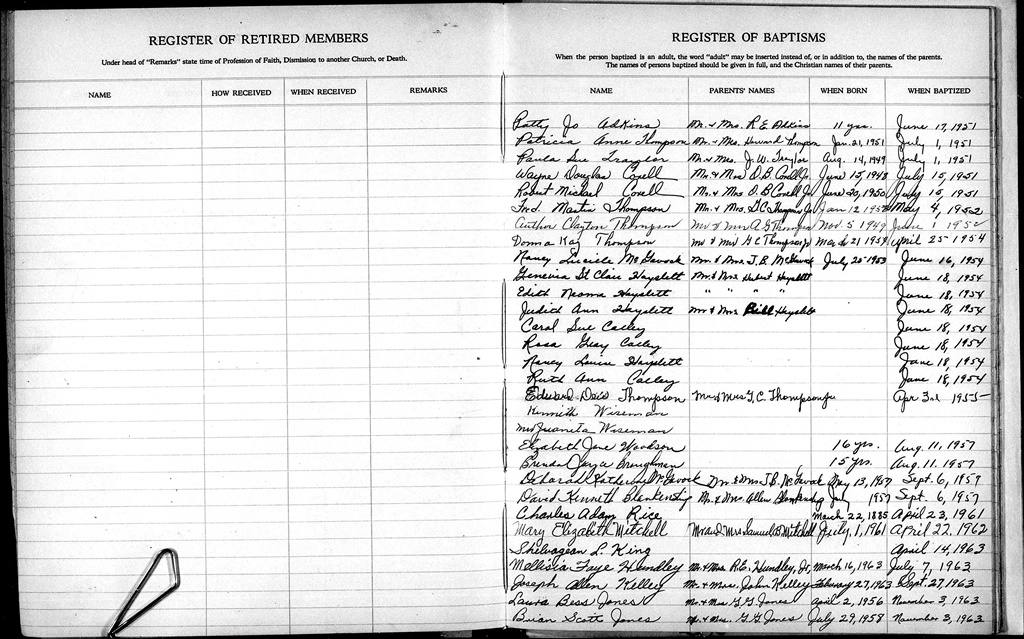 REGISTER OF RETIRED MEMBERS
Under head of "Remarks" state time of Profession of Faith, Dismission to another Church, or Death.
NAME HOW RECEIVED WHEN RECEIVED REMARKS
REGISTER OF BAPTISMS
When the person baptized is an adult, the word "adult" may be inserted instead of, or in addition to, the names of the parents.
The names of persons baptized should be given in full, and the Christian names of their parents.
NAME PARENTS' NAMES WHEN BORN WHEN BAPTIZED
Patty Jo Adkins Mr. & Mrs. R E Adkins 11 yrs. June 17, 1951
Patricia Anne Thompson Mr. & Mrs. Howard Thompson Jan. 21, 1951 July 1, 1951
Paula Sue Traylor Mr. & Mrs. J. W. Traylor Aug. 14, 1949 July 1, 1951
Wayne Douglas Covell Mr. & Mrs O. B. Covell Jr. June 15, 1948 July 15, 1951
Robert Michael Covell Mr. & Mrs O. B Covell Jr. June 20, 1950 July 15, 1951
Fred Martin Thompson Mr. & Mrs. G C Thompson Jr Jan 12 May 4, 1952
Arthur Clayton Thompson Mr & Mrs A G Thompson Nov. 5 1949 June 1 1952
Donna Kay Thompson Mr & Mrs G C Thompson Jr March 21 1954 April 25 1954
Nancy Lucile McGavock Mr. & Mrs. J. B. McGavock July 25 1953 June 16, 1954
Genevia St Clair Hayslett Mr. & Mrs Hubert Hayslett June 18, 1954
Edith Neoma Hayslett " " " " June 18, 1954
Judith Ann Hayslett Mr & Mrs Bill Hayslett June 18, 1954
Carol Sue Calley June 18, 1954
Rosa Gray Calley June 18, 1954
Nancy Louise Hayslett June 18, 1954
Ruth Ann Calley June 18, 1954
Edward Thompson Mr & Mrs G. C. Thompson Jr Apr 3rd 1955
Kenneth Wiseman
Mrs Juanita Wiseman
Elizabeth Jane Woodson 16 yrs. Aug. 11, 1957
Brenda Joyce Broughman 15 yrs. Aug. 11. 1957
Deborah Katherine McGavock Mr. & Mrs J. B. McGavock May 13, 1957 Sept. 6, 1957
David Kenneth Blankenship Mr. & Mrs Allen Blankenship July 1957 Sept. 6, 1957
Charles Adam Rice March 22, 1885 April 23, 1961
Mary Elizabeth Mitchell Mr and Mrs Samuel B Mitchell July, 1, 1961 April 22, 1962
Shelvagean L. King April 14, 1963
Mellisia Faye Hundley Mr. & Mrs. R.C. Hundley, Jr. March 16, 1963 July 7, 1963
Joseph Allen Kelley Mr. & Mrs. John Kelley February 27, 1963 Sept. 27, 1963
Laura Bess Jones Mr. & Mrs G. G. Jones April 2, 1956 November 3, 1963
Brian Scott Jones Mr. & Mrs. G. G. Jones July 29, 1958 November 3, 1963